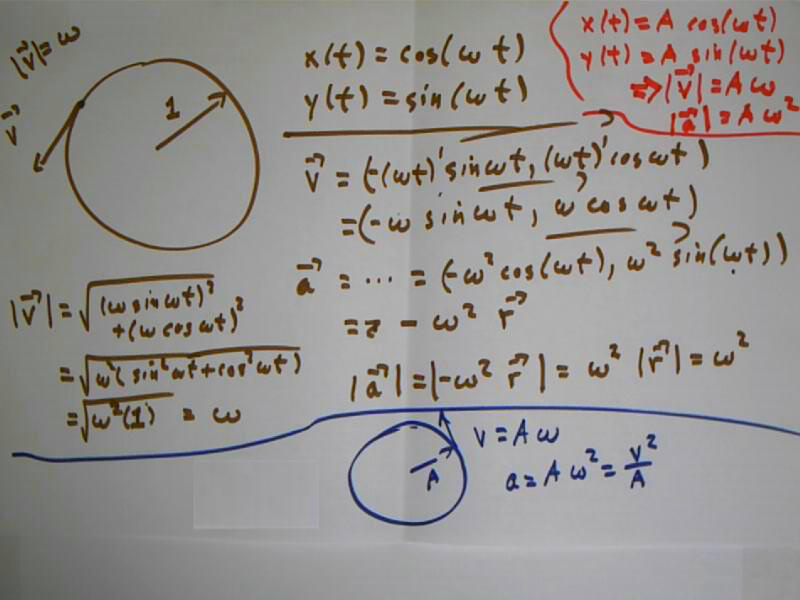 |v⃗| = ω
v⃗
1
x(t) = cos(ωt)
y(t) = sin(ωt)
x(t) = A cos(ωt)
y(t) = A sin(ωt)
⇒ |v⃗| = Aω
|a⃗| = Aω²
v⃗ = (-(ωt)' sin ωt, (ωt)' cos ωt)
= (-ω sin ωt, ω cos ωt)
a⃗ = ... = (-ω² cos(ωt), ω² sin(ωt))
= z - ω² r⃗
|a⃗| = |-ω² r⃗| = ω² |r⃗| = ω²
|v⃗| = √(ω sin ωt)²
+(ω cos ωt)²
= √ω²(sin² ωt + cos² ωt)
= √ω²(1) = ω
A
v = Aω
a = Aω² = v²/A